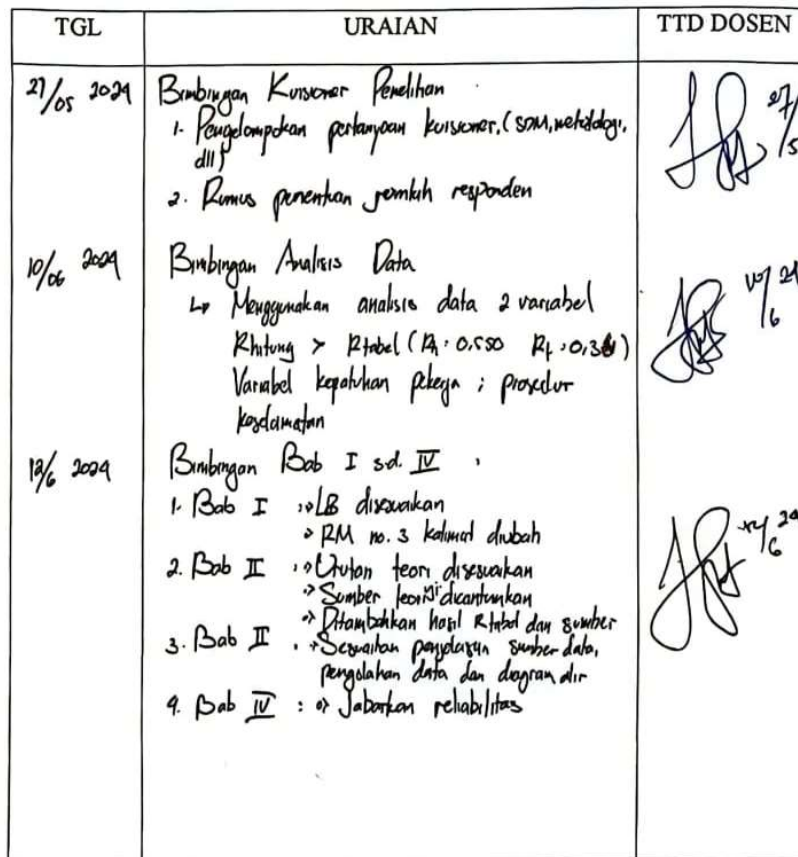 TGL URAIAN TTD DOSEN
27/05 2024 Bimbingan Kuisioner Penelitian
1. Pengelompokan pertanyaan kuisioner, (SDM, metodologi,
dll)
2. Rumus penentuan jumlah responden
27/5
10/06 2024 Bimbingan Analisis Data
↳ Menggunakan analisis data 2 variabel
Rhitung > Rtabel (Rh: 0,550 Rt: 0,3)
Variabel kepatuhan pekerja ; prosedur
keselamatan
10/6 24
12/6 2024 Bimbingan Bab I s.d. IV
1. Bab I : LB disesuaikan
RM no. 3 kalimat diubah
2. Bab II : Urutan teori disesuaikan
Sumber teori dicantumkan
Ditambahkan hasil Rtabel dan sumber
3. Bab II : Sesuaikan penjelasan sumber data,
pengolahan data dan diagram alir
4. Bab IV : Jabarkan reliabilitas
12/6 24